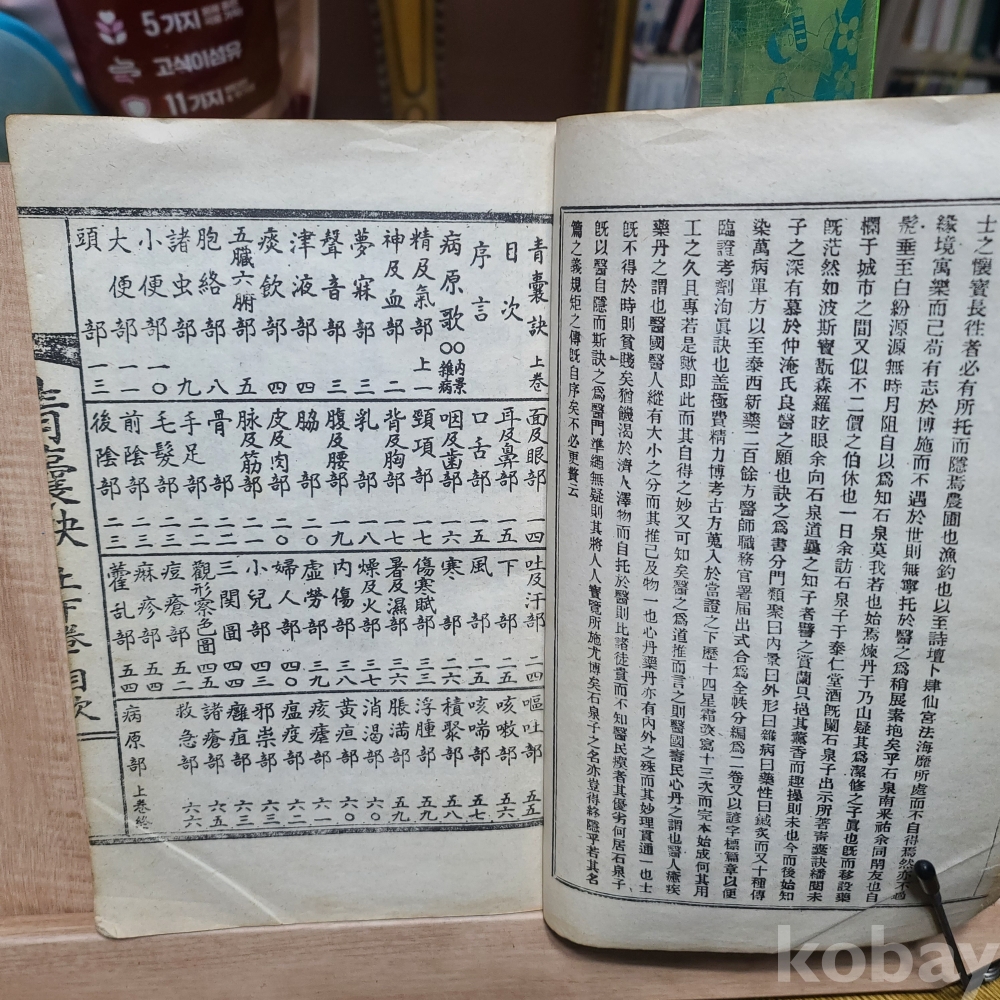 5가지
고식이섬유
11가지
士之懷寶長徃者必有所托而隱焉農圃也漁釣也以至詩壇卜肆仙宮法海靡所處而不自得焉然亦不過
緣境寓樂而已苟有志於博施而不遇於世則無寧托於醫之爲稍展素抱矣乎石泉南采祐余同閈友也自
髧垂至白紛源源無時月阻自以爲知石泉莫我若也始焉煉丹于乃山疑其爲潔修之子眞也旣而移設藥
欄于城市之間又似不二價之伯休也一日余訪石泉子于泰仁堂酒旣闌石泉子出示所著靑囊訣繙閱未
旣茫然如波斯寶翫森羅眩眼余向石泉道曩之知子者譬之賞蘭只挹其薰香而趣操則未也今而後始知
子之深有慕於仲淹氏良醫之願也訣之爲書分門類聚曰內景曰外形曰雜病曰藥性曰鍼灸而又十種傳
染萬病單方以至泰西新藥二百餘方醫師職務官署届出式合爲全帙分編爲二卷又以諺字標篇章以便
臨證考劑洵眞訣也盖極費精力博考古方蒐入於當證之下歷十四星霜改寫十三次而完本始成何其用
工之久且專若是歟即此而其自得之妙又可知矣醫之爲道推而言之則醫國壽民心丹之謂也醫人癒疾
藥丹之謂也醫國醫人縱有大小之分而其推己及物一也心丹藥丹亦有內外之殊而其妙理貫通一也士
旣不得於時則貧賤矣猶饑渴於濟人澤物而自托於醫則比諸徒貴而不知醫民瘼者其優劣何居石泉子
旣以醫自隱而斯訣之爲醫門準繩無疑則其將人人寶覽所施尤博矣石泉子之名亦豈得終隱乎若其名
篇之義規矩之傳旣自序矣不必更贅云
靑囊訣 上卷
目次
序言
病原歌 〇〇內景雜病
精及氣部 上一
神及血部 二
夢寐部 三
聲音部 三
津液部 四
痰飮部 四
五臟六腑部 五
胞絡部 八
諸虫部 九
小便部 一〇
大便部 一一
頭部 一三
面及眼部 一四
耳及鼻部 一五
口舌部 一五
咽及齒部 一六
頸項部 一七
背及胸部 一七
乳部 一八
腹及腰部 一九
脇部 二〇
皮及肉部 二〇
脉及筋部 二一
骨部 二一
手足部 二二
毛髮部 二三
前陰部 二三
後陰部 二三
吐及汗部 二四
下部 二五
風部 二五
寒部 二六
傷寒賦 二六
暑及濕部 三六
燥及火部 三七
內傷部 三八
虛勞部 三九
婦人部 四〇
小兒部 四三
三関圖 四四
觀形察色圖 四五
痘瘡部 五二
麻疹部 五四
霍乱部 五四
嘔吐部 五五
咳嗽部 五六
咳喘部 五七
積聚部 五八
浮腫部 五九
脹滿部 五九
消渴部 六〇
黃疸部 六〇
痎瘧部 六一
瘟疫部 六二
邪祟部 六三
癰疽部 六三
諸瘡部 六五
救急部 六六
病原部 上卷終
靑囊訣 上下卷目次
kobay